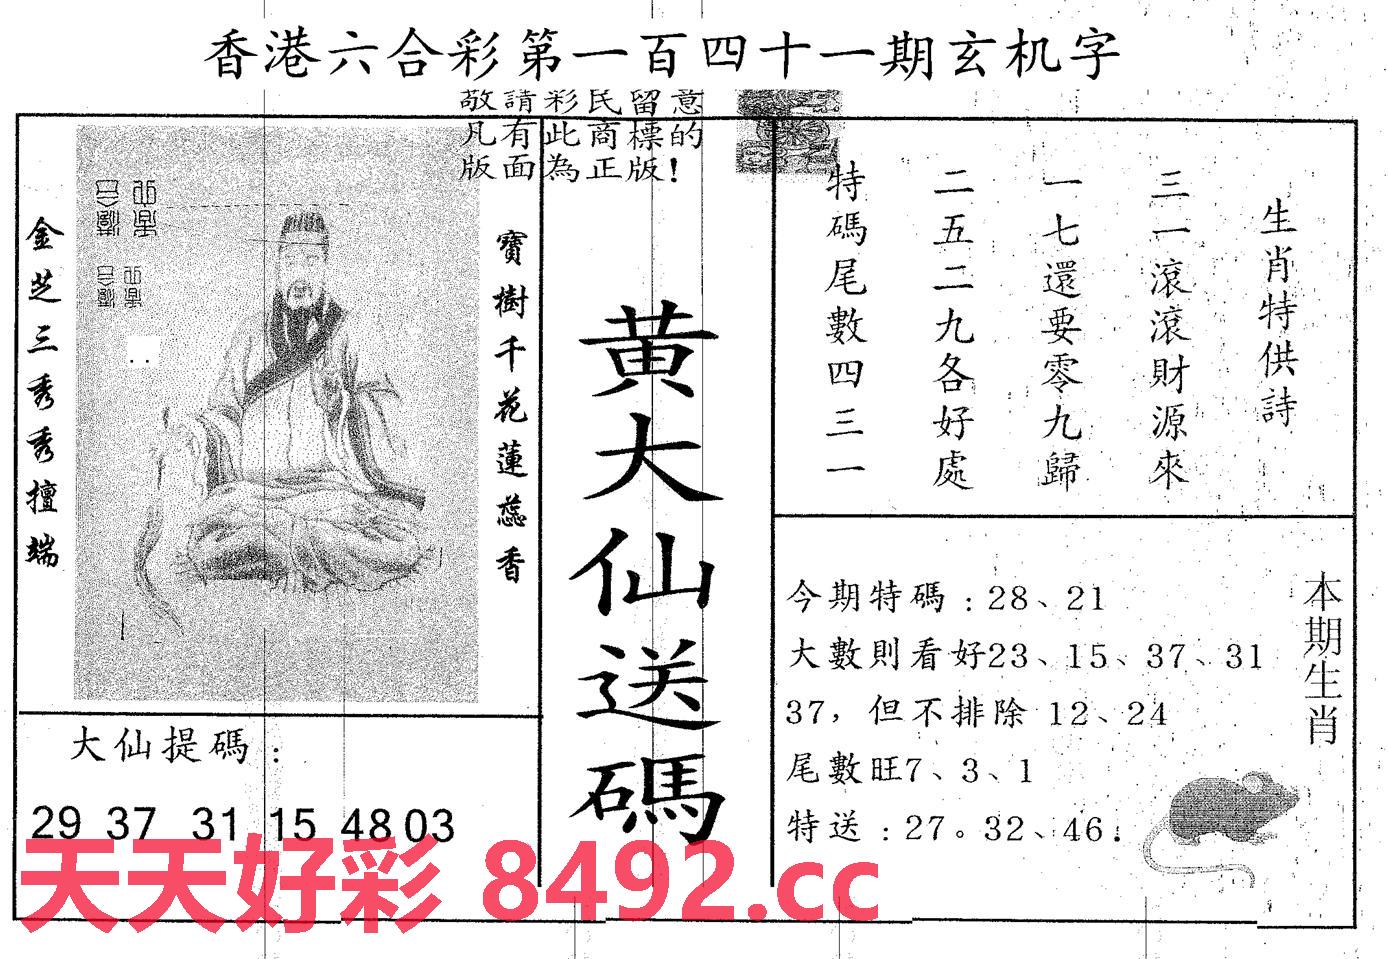 香港六合彩第一百四十一期玄机字
敬請彩民留意
凡有此商標的
版面為正版!
生肖特供詩
三一滾滾財源來
一七還要零九歸
二五二九各好處
特碼尾數四三一
寶樹千花蓮蕊香
金芝三秀秀擅端
黄大仙送碼
本期生肖
今期特碼:28、21
大數則看好23、15、37、31
37，但不排除 12、24
尾數旺7、3、1
特送:27。32、46.
大仙提碼:
29 37 31 15 48 03
天天好彩 8492.cc